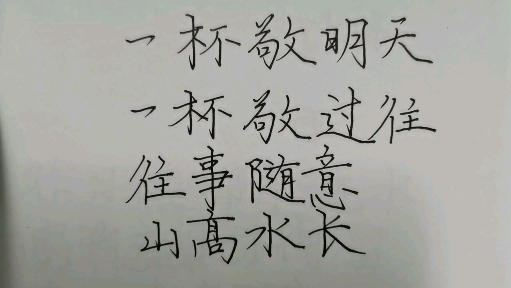 一杯敬明天
一杯敬过往
往事随意
山高水长